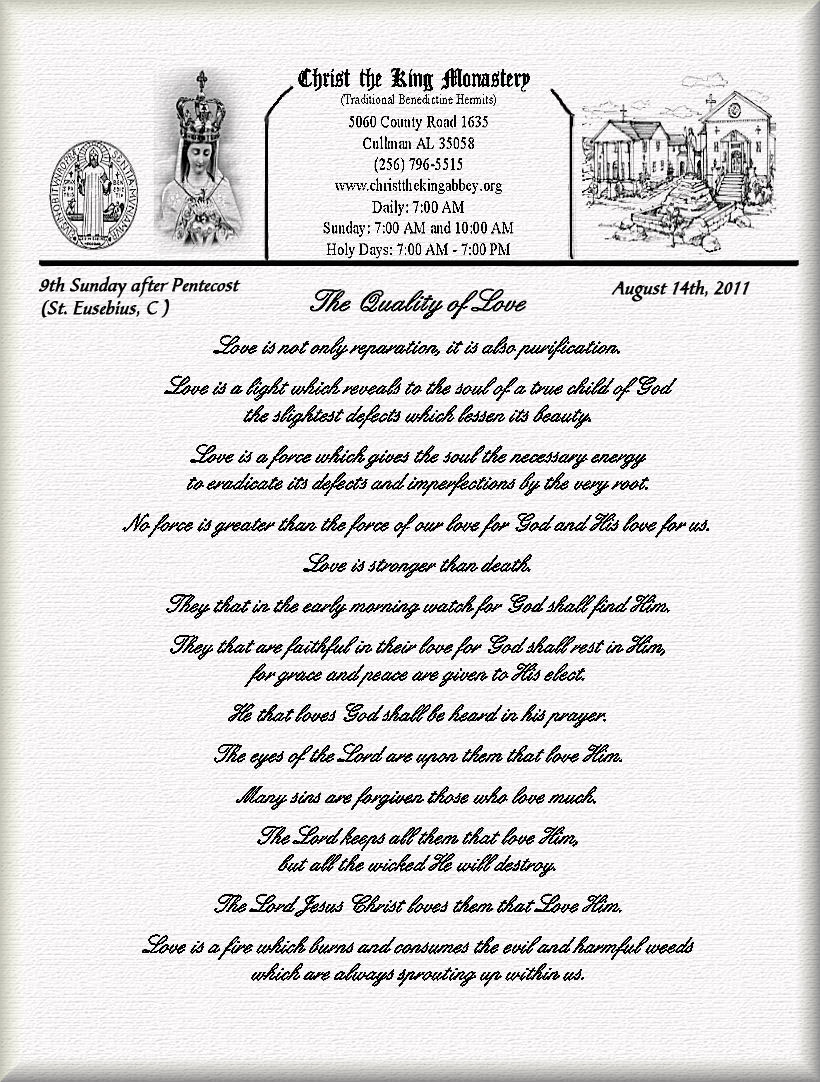 Christ the King Monastery
(Traditional Benedictine Hermits)
5060 County Road 1635
Cullman AL 35058
(256) 796-5515
www.christthekingabbey.org
Daily: 7:00 AM
Sunday: 7:00 AM and 10:00 AM
Holy Days: 7:00 AM - 7:00 PM
9th Sunday after Pentecost
(St. Eusebius, C )
August 14th, 2011
The Quality of Love
Love is not only reparation, it is also purification.
Love is a light which reveals to the soul of a true child of God
the slightest defects which lessen its beauty.
Love is a force which gives the soul the necessary energy
to eradicate its defects and imperfections by the very root.
No force is greater than the force of our love for God and His love for us.
Love is stronger than death.
They that in the early morning watch for God shall find Him.
They that are faithful in their love for God shall rest in Him,
for grace and peace are given to His elect.
He that loves God shall be heard in his prayer.
The eyes of the Lord are upon them that love Him.
Many sins are forgiven those who love much.
The Lord keeps all them that love Him,
but all the wicked He will destroy.
The Lord Jesus Christ loves them that Love Him.
Love is a fire which burns and consumes the evil and harmful weeds
which are always sprouting up within us.